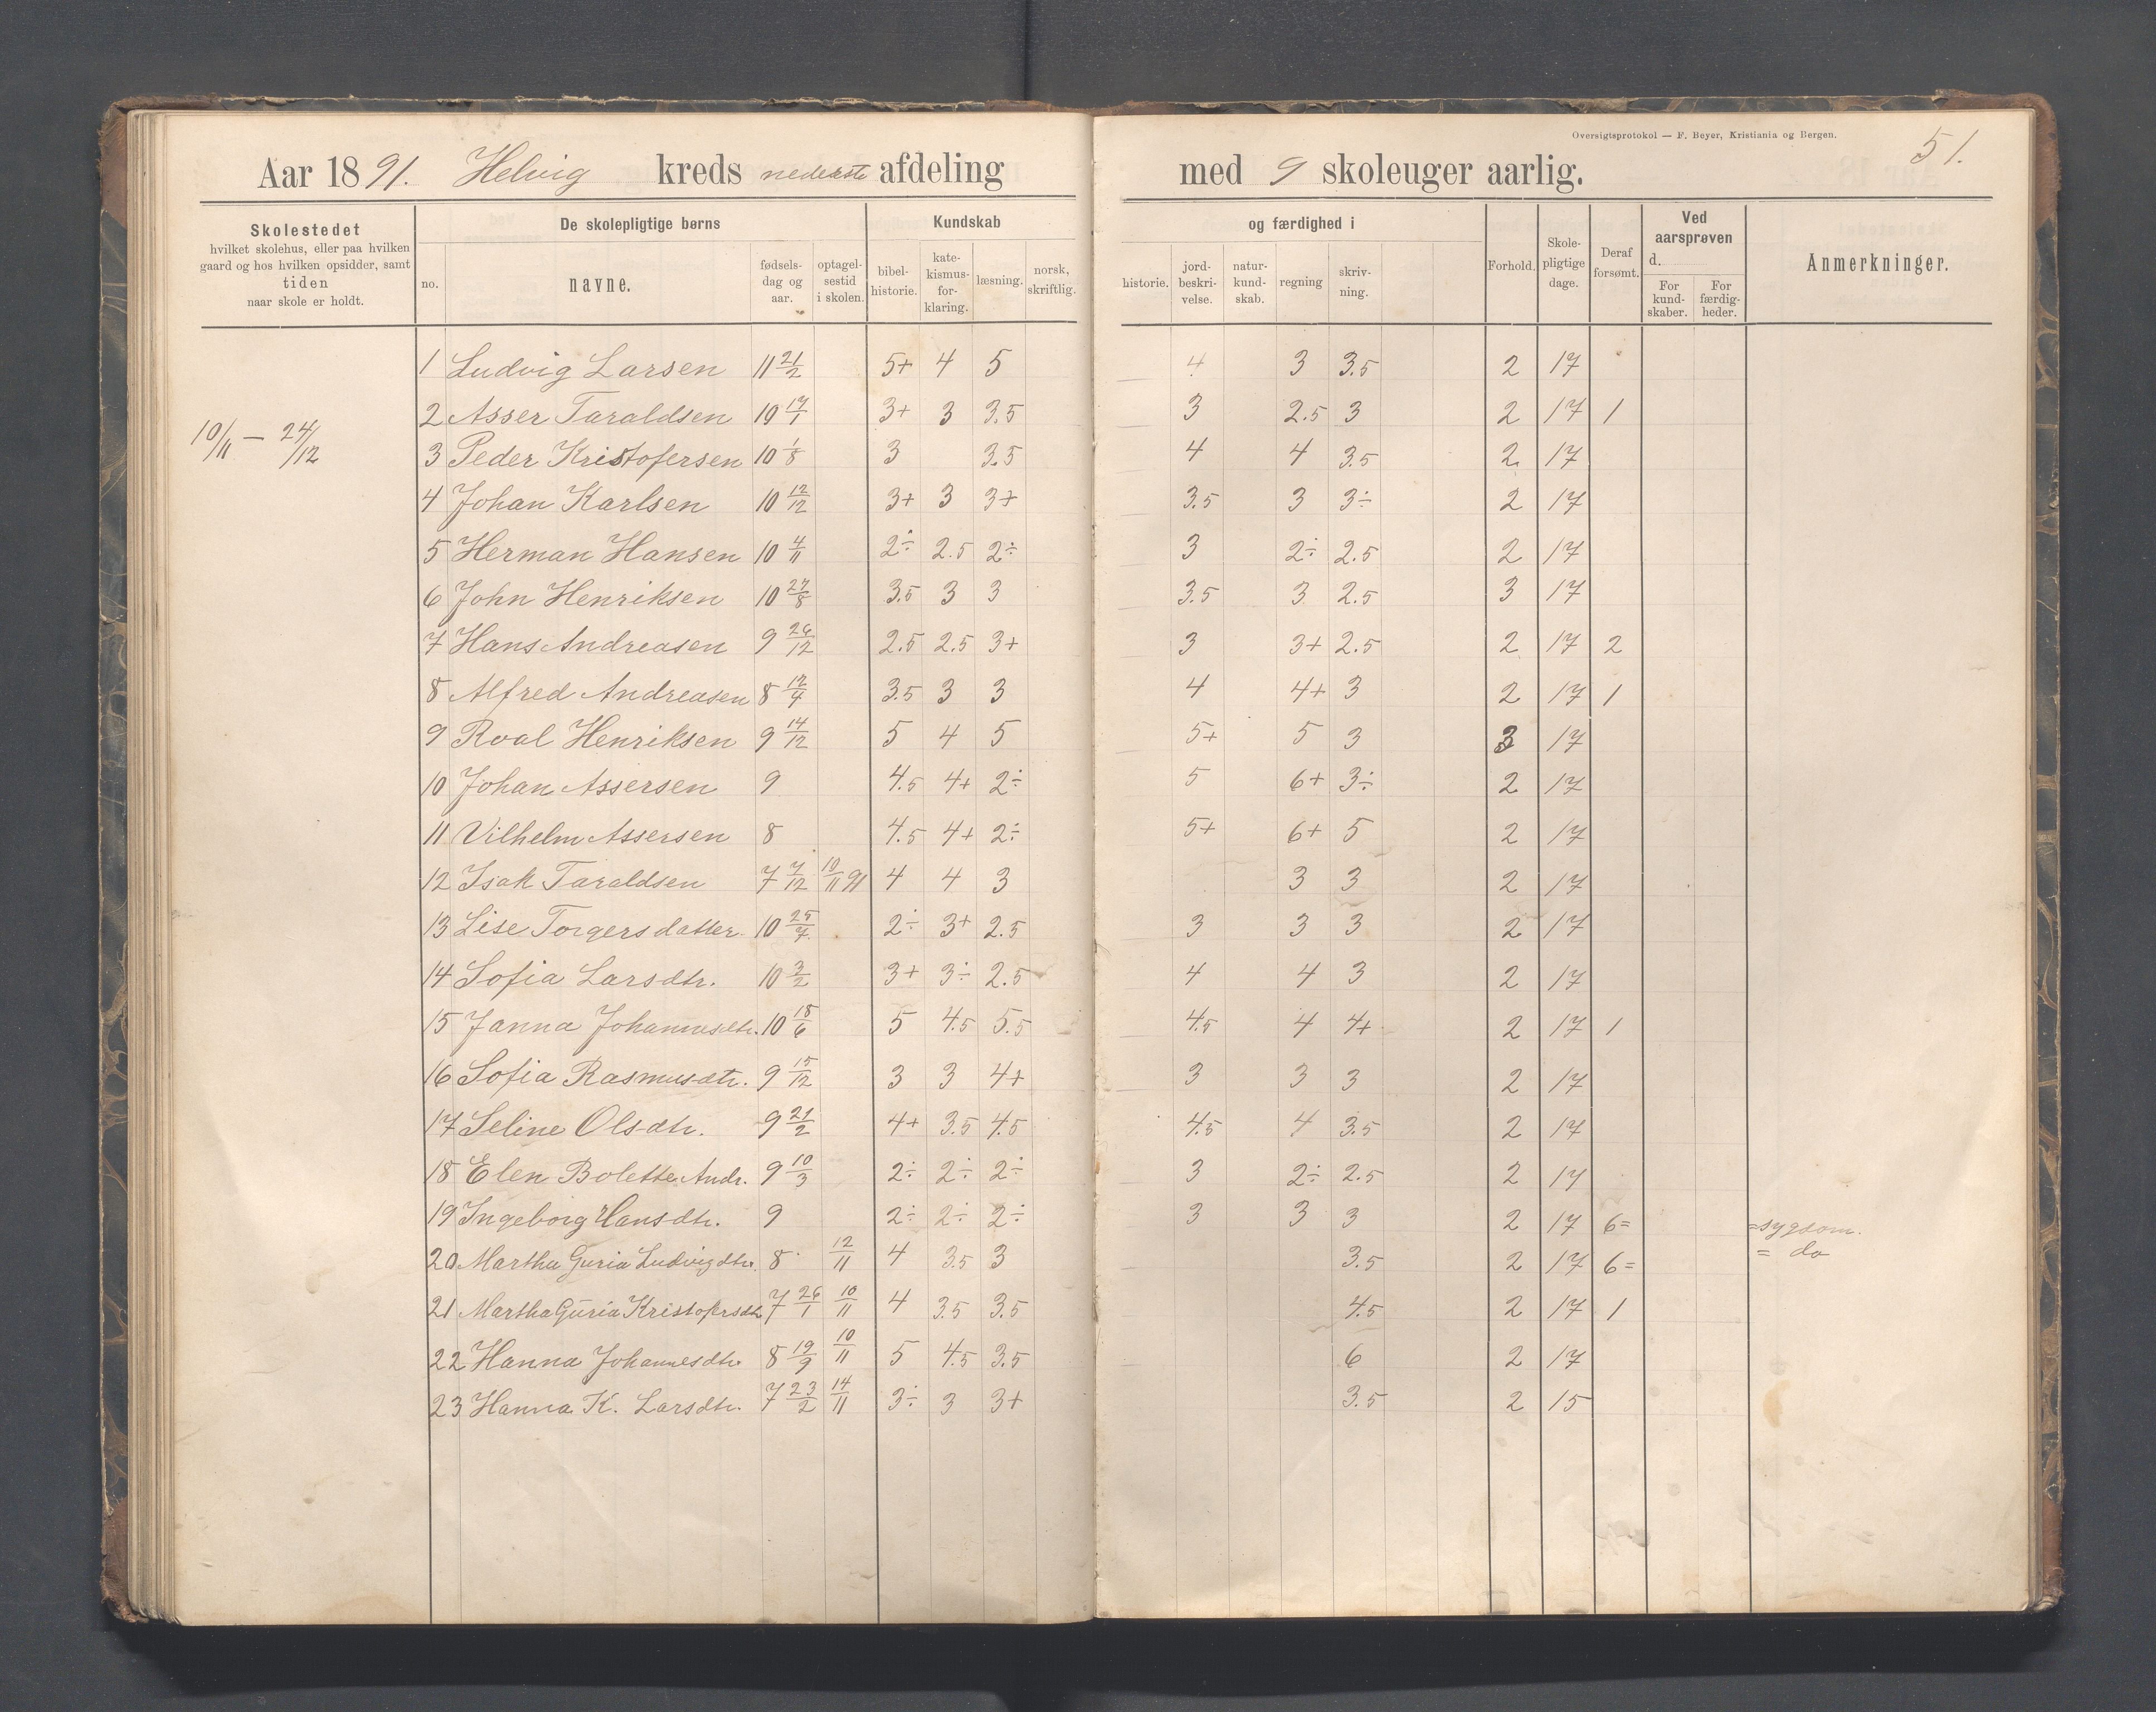 Oversigtsprotokol — F. Beyer, Kristiania og Bergen.
51.
Aar 1891. Helvig kreds nederste afdeling med 9 skoleuger aarlig.
Skolestedet hvilket skolehus, eller paa hvilken gaard og hos hvilken opsidder, samt tiden naar skole er holdt.
De skolepligtige børns
no. navne. fødselsdag og aar. optagelsestid i skolen.
Kundskab og færdighed i
bibelhistorie. katekismusforklaring. læsning. norsk, skriftlig. historie. jordbeskrivelse. naturkundskab. regning skrivning.
Forhold. Skolepligtige dage. Deraf forsømt.
Ved aarsprøven d.
For kundskaber. For færdigheder.
Anmerkninger.
10/11 — 24/12
1 Ludvig Larsen 11 21/2 5+ 4 5 4 3 3.5 2 17
2 Asser Taraldsen 10 17/1 3+ 3 3.5 3 2.5 3 2 17 1
3 Peder Kristofersen 10 1/8 3 3.5 4 4 3.5 2 17
4 Johan Karlsen 10 12/12 3+ 3 3+ 3.5 3 3÷ 2 17
5 Herman Hansen 10 4/11 2÷ 2.5 2÷ 3 2÷ 2.5 2 17
6 John Henriksen 10 27/8 3.5 3 3 3.5 3 2.5 3 17
7 Hans Andreasen 9 26/12 2.5 2.5 3+ 3 3+ 2.5 2 17 2
8 Alfred Andreasen 8 12/4 3.5 3 3 4 4+ 3 2 17 1
9 Roal Henriksen 9 14/12 5 4 5 5+ 5 3 3 17
10 Johan Assersen 9 4.5 4+ 2÷ 5 6+ 3÷ 2 17
11 Vilhelm Assersen 8 4.5 4+ 2÷ 5+ 6+ 5 2 17
12 Isak Taraldsen 7 7/12 10/11 91 4 4 3 3 3 2 17
13 Lise Torgersdatter 10 25/7 2÷ 3+ 2.5 3 3 3 2 17
14 Sofia Larsdtr. 10 3/2 3+ 3÷ 2.5 4 4 3 2 17
15 Janna Johannesdtr. 10 18/6 5 4.5 5.5 4.5 4 4+ 2 17 1
16 Sofia Rasmusdtr. 9 15/12 3 3 4+ 3 3 3 2 17
17 Seline Olsdtr. 9 21/2 4+ 3.5 4.5 4.5 4 3.5 2 17
18 Elen Bolette Andr. 9 10/3 2÷ 2÷ 2÷ 3 2÷ 2.5 2 17
19 Ingeborg Hansdtr. 9 2÷ 2÷ 2÷ 3 3 3 2 17 6= =sygdom.
20 Martha Guria Ludvigdtr. 8 12/11 4 3.5 3 3.5 2 17 6= = do
21 Martha Guria Kristofersdtr 7 26/1 10/11 4 3.5 3.5 4.5 2 17 1
22 Hanna Johannesdtr. 8 19/9 10/11 5 4.5 3.5 6 2 17
23 Hanna K. Larsdtr. 7 23/2 14/11 3÷ 3 3+ 3.5 2 15